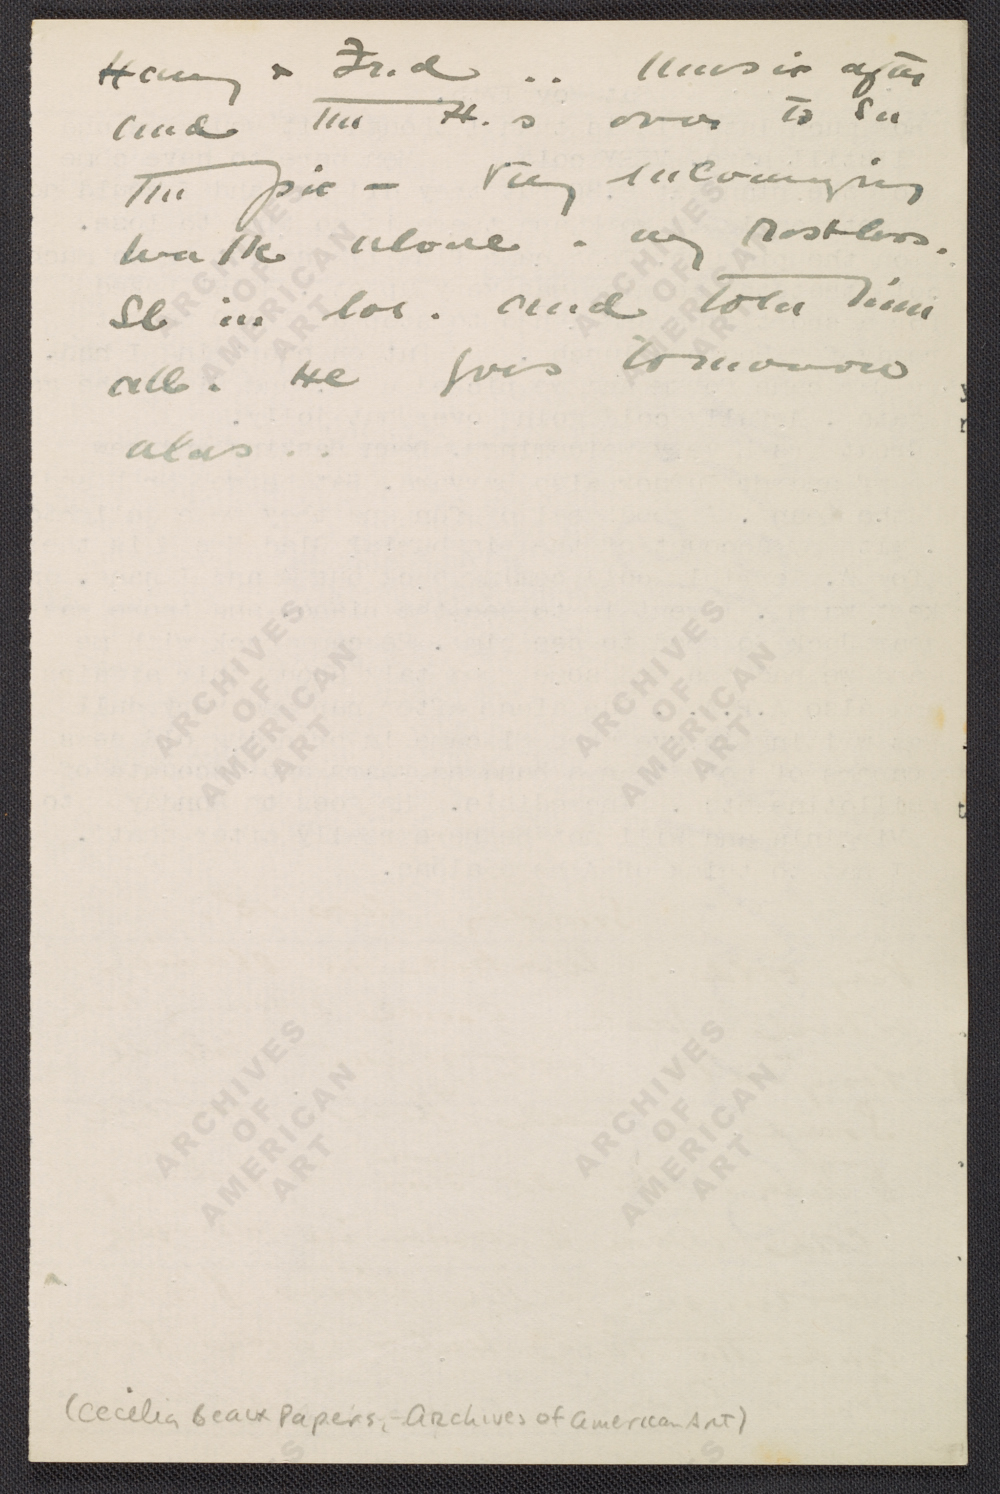 Harry & Fred .. Music after
and the H.s over to see
the pic - Very encouraging
walk alone . my restless.
Sb in  . and told him
all. He goes tomorrow
alas . .
(Cecilia Beaux Papers, - Archives of American Art)
ARCHIVES
OF
AMERICAN
ART
ARCHIVES
OF
AMERICAN
ART
ARCHIVES
OF
AMERICAN
ART
ARCHIVES
OF
AMERICAN
ART
ARCHIVES
OF
AMERICAN
ART
ARCHIVES
OF
AMERICAN
ART